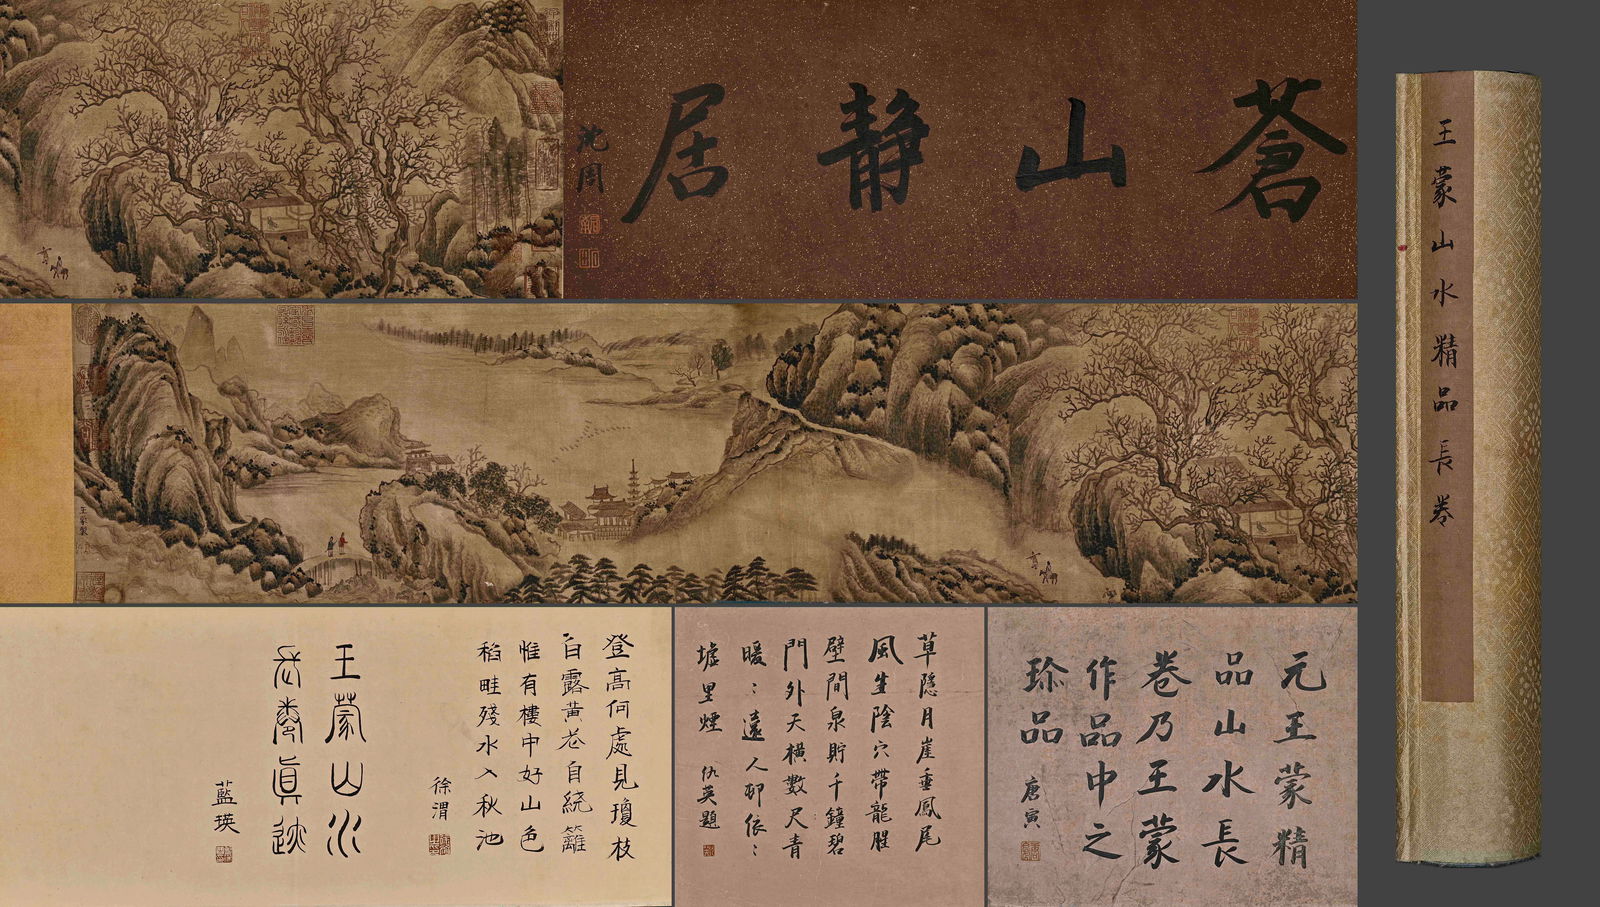 蒼山靜居
沈周
王蒙山水精品長卷
王蒙製
元王蒙精
品山水長
卷乃王蒙
作品中之
珎品
唐寅
草隱月崖垂鳳尾
風生陰穴帶龍腥
壁間泉貯千鐘碧
門外天橫數尺青
暖：遠人邨依：
墟里煙
仇英題
登高何處見瓊枝
白露黃花自繞籬
惟有樓中好山色
稻畦殘水入秋池
徐渭
王蒙山水
長卷真迹
藍瑛